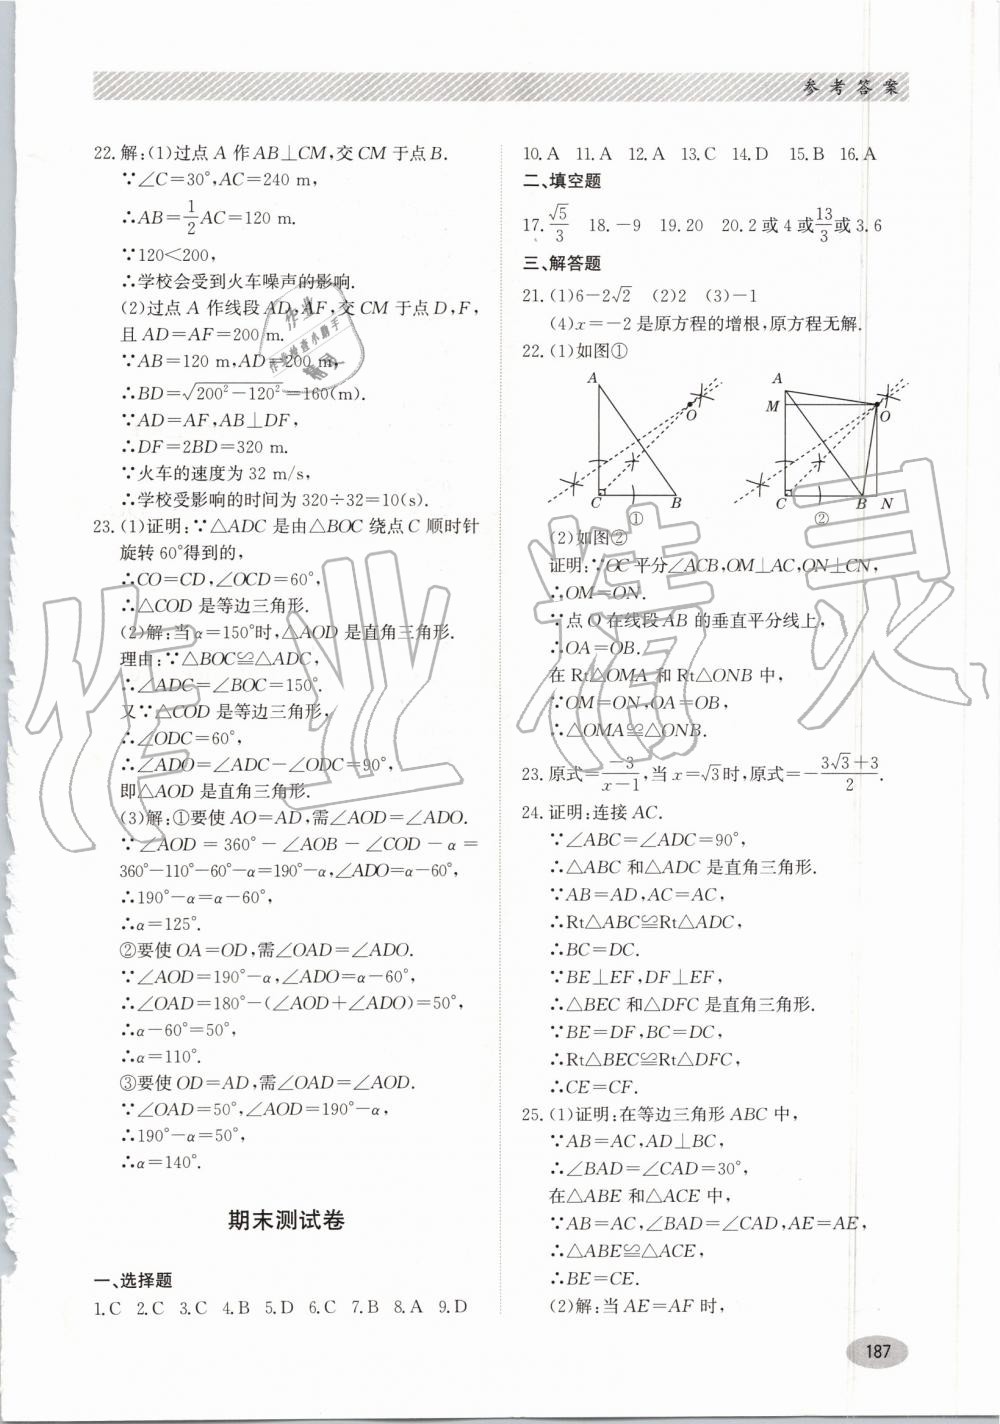 参考答案
22.解:(1)过点A作AB⊥CM,交CM于点B.
∵∠C=30°,AC=240 m,
∴AB=1/2AC=120 m.
∵120<200,
∴学校会受到火车噪声的影响.
(2)过点A作线段AD,AF,交CM于点D,F,
且AD=AF=200 m.
∵AB=120 m,AD=200 m,
∴BD=√(200²-120²)=160(m).
∵AD=AF,AB⊥DF,
∴DF=2BD=320 m.
∵火车的速度为32 m/s,
∴学校受影响的时间为320÷32=10(s).
23.(1)证明:∵△ADC是由△BOC绕点C顺时针
旋转60°得到的,
∴CO=CD,∠OCD=60°,
∴△COD是等边三角形.
(2)解:当α=150°时,△AOD是直角三角形.
理由:∵△BOC≌△ADC,
∴∠ADC=∠BOC=150°.
又∵△COD是等边三角形,
∴∠ODC=60°,
∴∠ADO=∠ADC-∠ODC=90°,
即△AOD是直角三角形.
(3)解:①要使AO=AD,需∠AOD=∠ADO.
∵∠AOD=360°-∠AOB-∠COD-α=
360°-110°-60°-α=190°-α,∠ADO=α-60°,
∴190°-α=α-60°,
∴α=125°.
②要使OA=OD,需∠OAD=∠ADO.
∵∠AOD=190°-α,∠ADO=α-60°,
∴∠OAD=180°-(∠AOD+∠ADO)=50°,
∴α-60°=50°,
∴α=110°.
③要使OD=AD,需∠OAD=∠AOD.
∵∠OAD=50°,∠AOD=190°-α,
∴190°-α=50°,
∴α=140°.
期末测试卷
一、选择题
1.C 2.C 3.C 4.B 5.D 6.C 7.B 8.A 9.D
10.A 11.A 12.A 13.C 14.D 15.B 16.A
二、填空题
17.√5/3 18.-9 19.20 20.2或4或13/3或3.6
三、解答题
21.(1)6-2√2 (2)2 (3)-1
(4)x=-2是原方程的增根,原方程无解.
22.(1)如图①
A O C B ①
A M O C B N ②
(2)如图②
证明:∵OC平分∠ACB,OM⊥AC,ON⊥CN,
∴OM=ON.
∵点O在线段AB的垂直平分线上,
∴OA=OB.
在Rt△OMA和Rt△ONB中,
∵OM=ON,OA=OB,
∴△OMA≌△ONB.
23.原式=-3/(x-1),当x=√3时,原式=-(3√3+3)/2.
24.证明:连接AC.
∵∠ABC=∠ADC=90°,
∴△ABC和△ADC是直角三角形.
∵AB=AD,AC=AC,
∴Rt△ABC≌Rt△ADC,
∴BC=DC.
∵BE⊥EF,DF⊥EF,
∴△BEC和△DFC是直角三角形.
∵BE=DF,BC=DC,
∴Rt△BEC≌Rt△DFC,
∴CE=CF.
25.(1)证明:在等边三角形ABC中,
∵AB=AC,AD⊥BC,
∴∠BAD=∠CAD=30°,
在△ABE和△ACE中,
∵AB=AC,∠BAD=∠CAD,AE=AE,
∴△ABE≌△ACE,
∴BE=CE.
(2)解:当AE=AF时,
187
作业
作业检查小助手
作业精灵